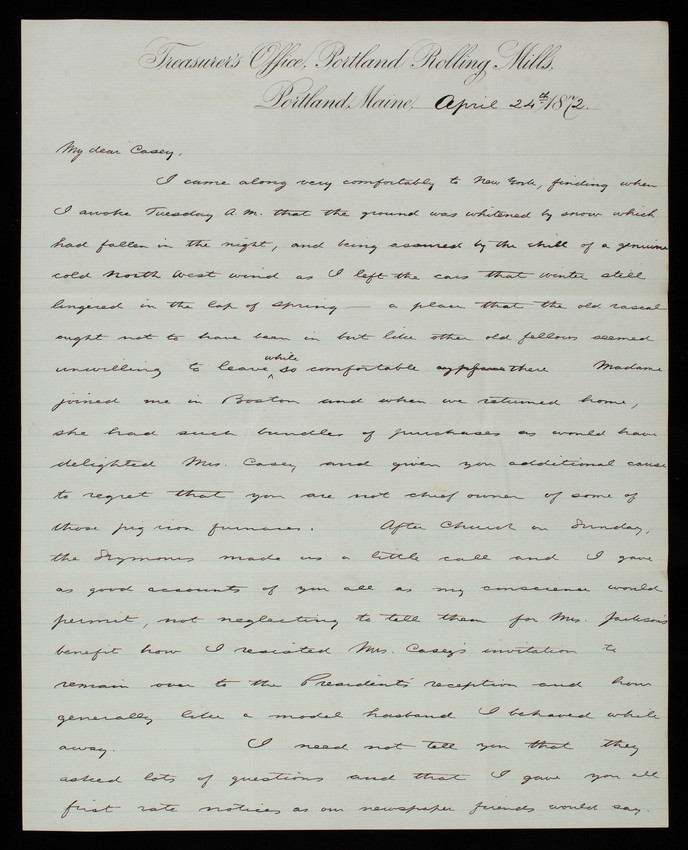 Treasurer's Office, Portland Rolling Mills,
Portland, Maine, April 24th 1872.
My dear Casey,
I came along very comfortably to New York, finding when
I awoke Tuesday A.M. that the ground was whitened by snow which
had fallen in the night, and being assured by the chill of a genuine
cold North West wind as I left the cars that winter still
lingered in the lap of Spring — a place that the old rascal
ought not to have been in but like other old fellows seemed
unwilling to leave while so comfortable there Madame
joined me in Boston and when we returned home,
she had such bundles of purchases as would have
delighted Mrs. Casey and given you additional cause
to regret that you are not chief owner of some of
those pig iron furnaces. After Church on Sunday,
the made us a little call and I gave
as good accounts of you all as my conscience would
permit, not neglecting to tell them for Mrs. Jackson's
benefit how I resisted Mrs. Casey's invitation to
remain over to the President's reception and how
generally like a model husband I behaved while
away. I need not tell you that they
asked lots of questions and that I gave you all
first rate notices as our newspaper friends would say.